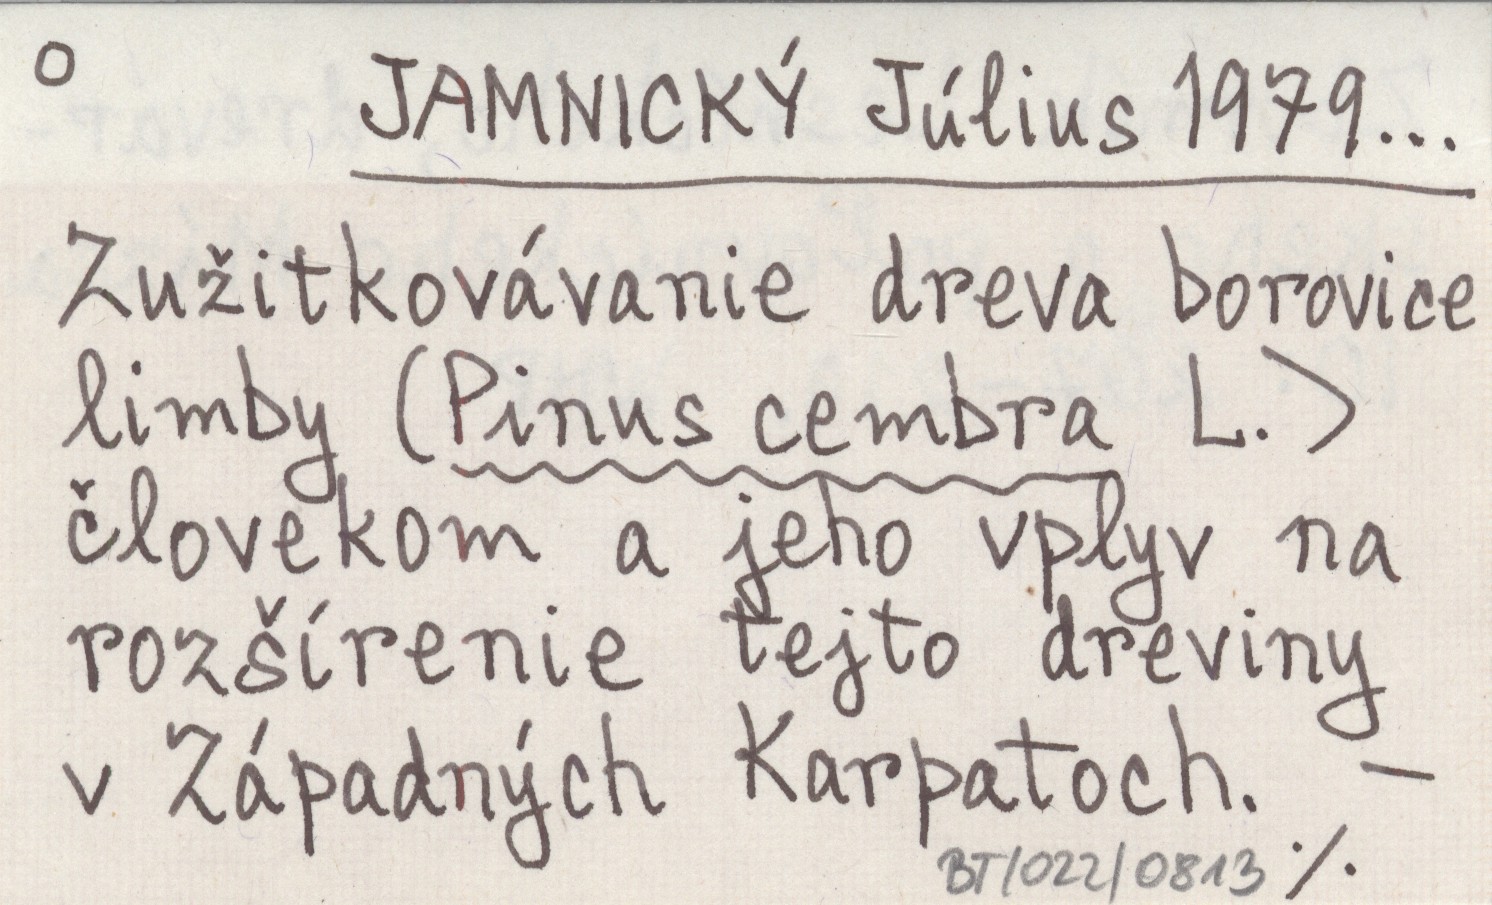 o JAMNICKÝ Július 1979...
Zužitkovávanie dreva borovice
limby (Pinus cembra L.)
človekom a jeho vplyv na
rozšírenie tejto dreviny
v Západných Karpatoch. –
BT/022/0813 ·/.